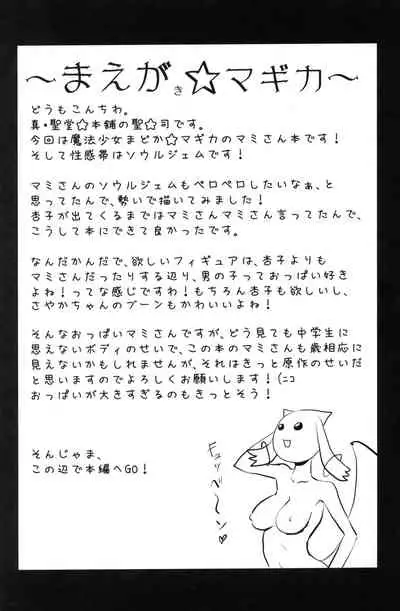 ～まえがき☆マギカ～
どうもこんちわ。
真・聖堂☆本舗の聖☆司です。
今回は魔法少女まどか☆マギカのマミさん本です！
そして性感帯はソウルジェムです！
マミさんのソウルジェムもペロペロしたいなぁ、と
思ってたんで、勢いで描いてみました！
杏子が出てくるまではマミさんマミさん言ってたんで、
こうして本にできて良かったです。
なんだかんだで、欲しいフィギュアは、杏子よりも
マミさんだったりする辺り、男の子っておっぱい好き
よね！ってな感じですわ！もちろん杏子も欲しいし、
さやかちゃんのブーンもかわいいよね！
そんなおっぱいマミさんですが、どう見ても中学生に
思えないボディのせいで、この本のマミさんも歳相応に
見えないかもしれませんが、それはきっと原作のせいだ
と思いますのでよろしくお願いします！(ﾆｺ
おっぱいが大きすぎるのもきっとそう！
そんじゃま、
この辺で本編へGO！
キュッベーン♡